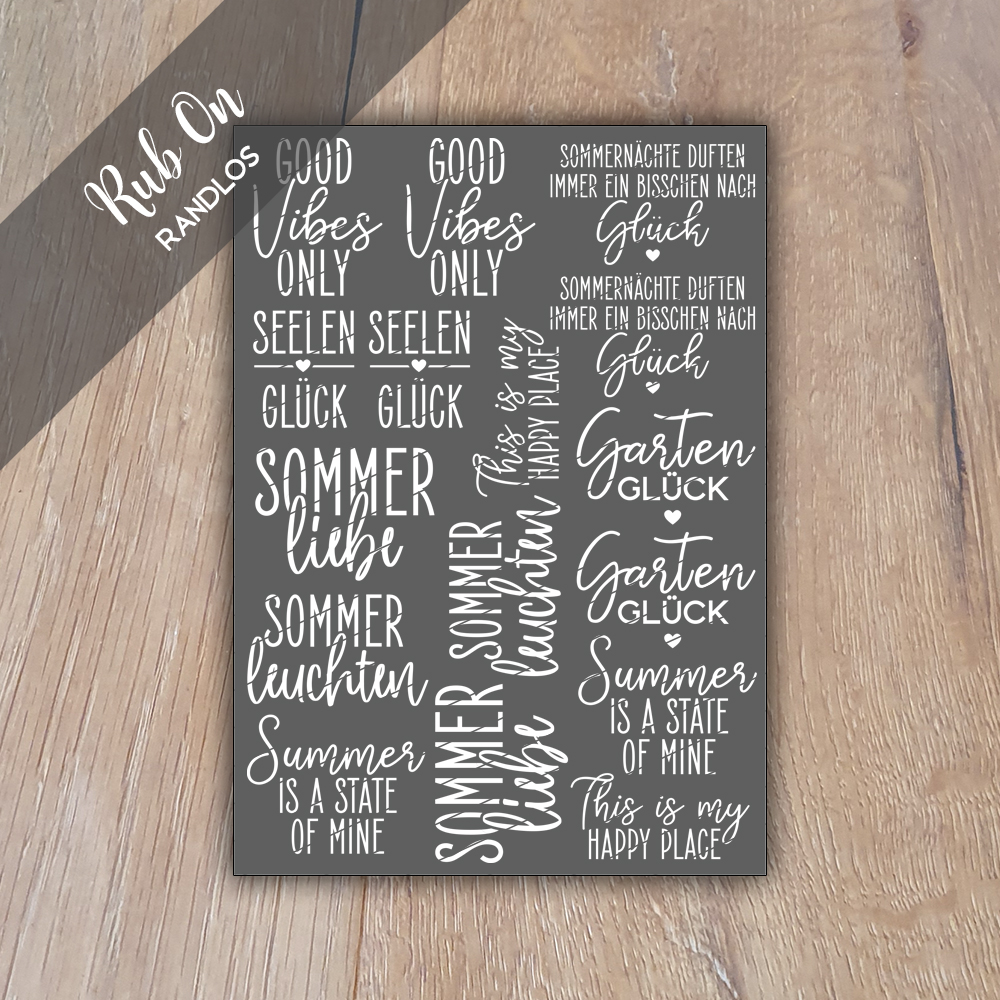 Rub On
RANDLOS
GOOD
Vibes
ONLY
GOOD
Vibes
ONLY
SOMMERNÄCHTE DUFTEN
IMMER EIN BISSCHEN NACH
Glück
SOMMERNÄCHTE DUFTEN
IMMER EIN BISSCHEN NACH
Glück
SEELEN
GLÜCK
SEELEN
GLÜCK
This is my
HAPPY PLACE
Garten
GLÜCK
SOMMER
liebe
SOMMER
leuchten
Garten
GLÜCK
SOMMER
leuchten
Summer
IS A STATE
OF MINE
SOMMER
liebe
Summer
IS A STATE
OF MINE
This is my
HAPPY PLACE